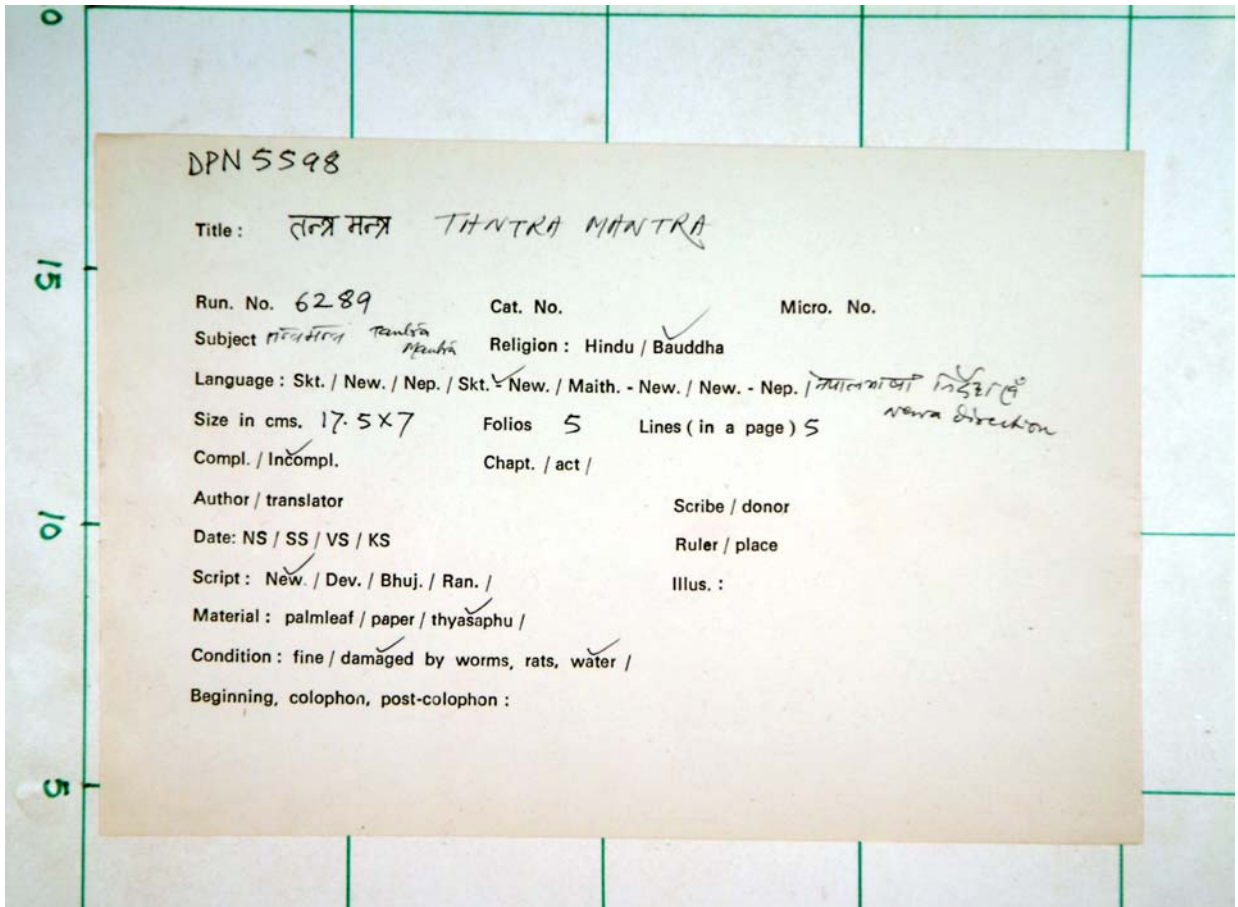 DPN 5598
Title : तन्त्र मन्त्र TANTRA MANTRA
Run. No. 6289 Cat. No. Micro. No.
Subject Tantra Mantra Religion : Hindu / Bauddha
Language : Skt. / New. / Nep. / Skt. - New. / Maith. - New. / New. - Nep. / Newa direction
Size in cms. 17.5×7 Folios 5 Lines ( in a page ) 5
Compl. / Incompl. Chapt. / act /
Author / translator Scribe / donor
Date: NS / SS / VS / KS Ruler / place
Script : New. / Dev. / Bhuj. / Ran. / Illus. :
Material : palmleaf / paper / thyasaphu /
Condition : fine / damaged by worms, rats, water /
Beginning, colophon, post-colophon :
0
15
10
5